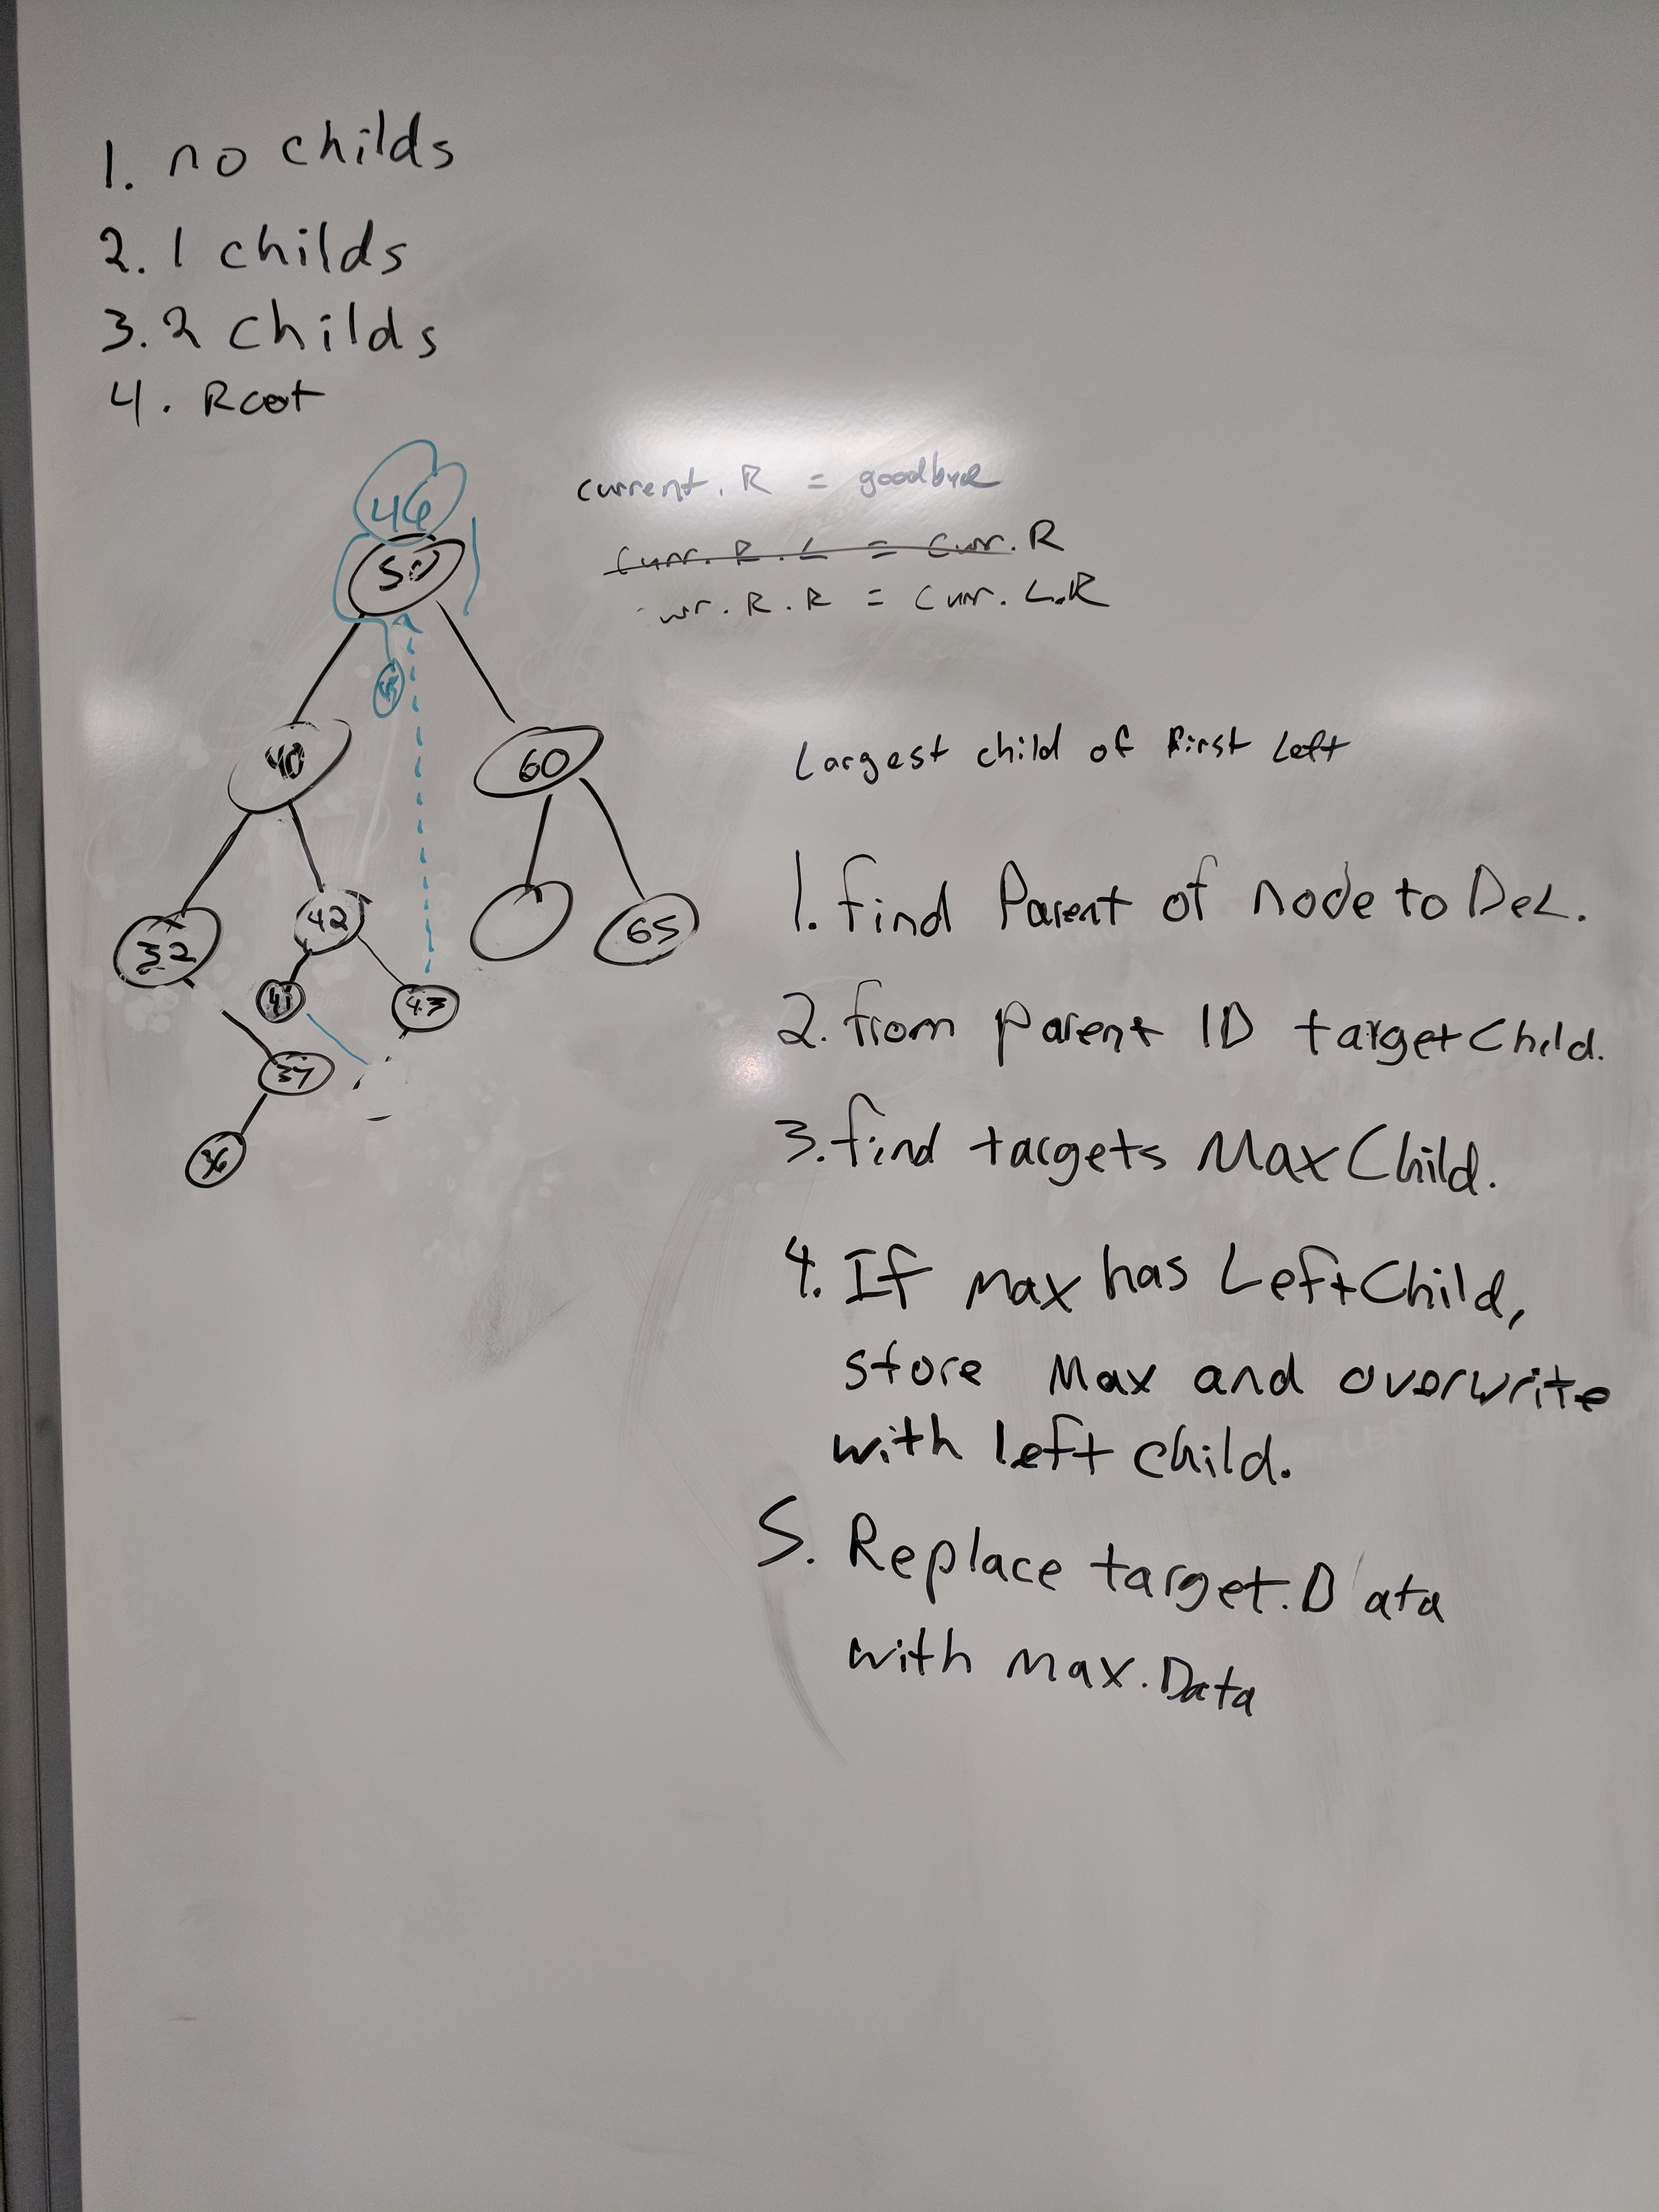 1. no childs
2. 1 childs
3. 2 childs
4. Root
current. R = goodbye
curr. R. L = curr. R
curr. R. R = curr. L.R
46
50
40
60
Largest child of first Left
32
42
65
41
43
37
36
1. find Parent of node to DeL.
2. from parent ID target Child.
3. find targets Max Child.
4. If max has Left Child,
store Max and overwrite
with left child.
5. Replace target. Data
with max. Data